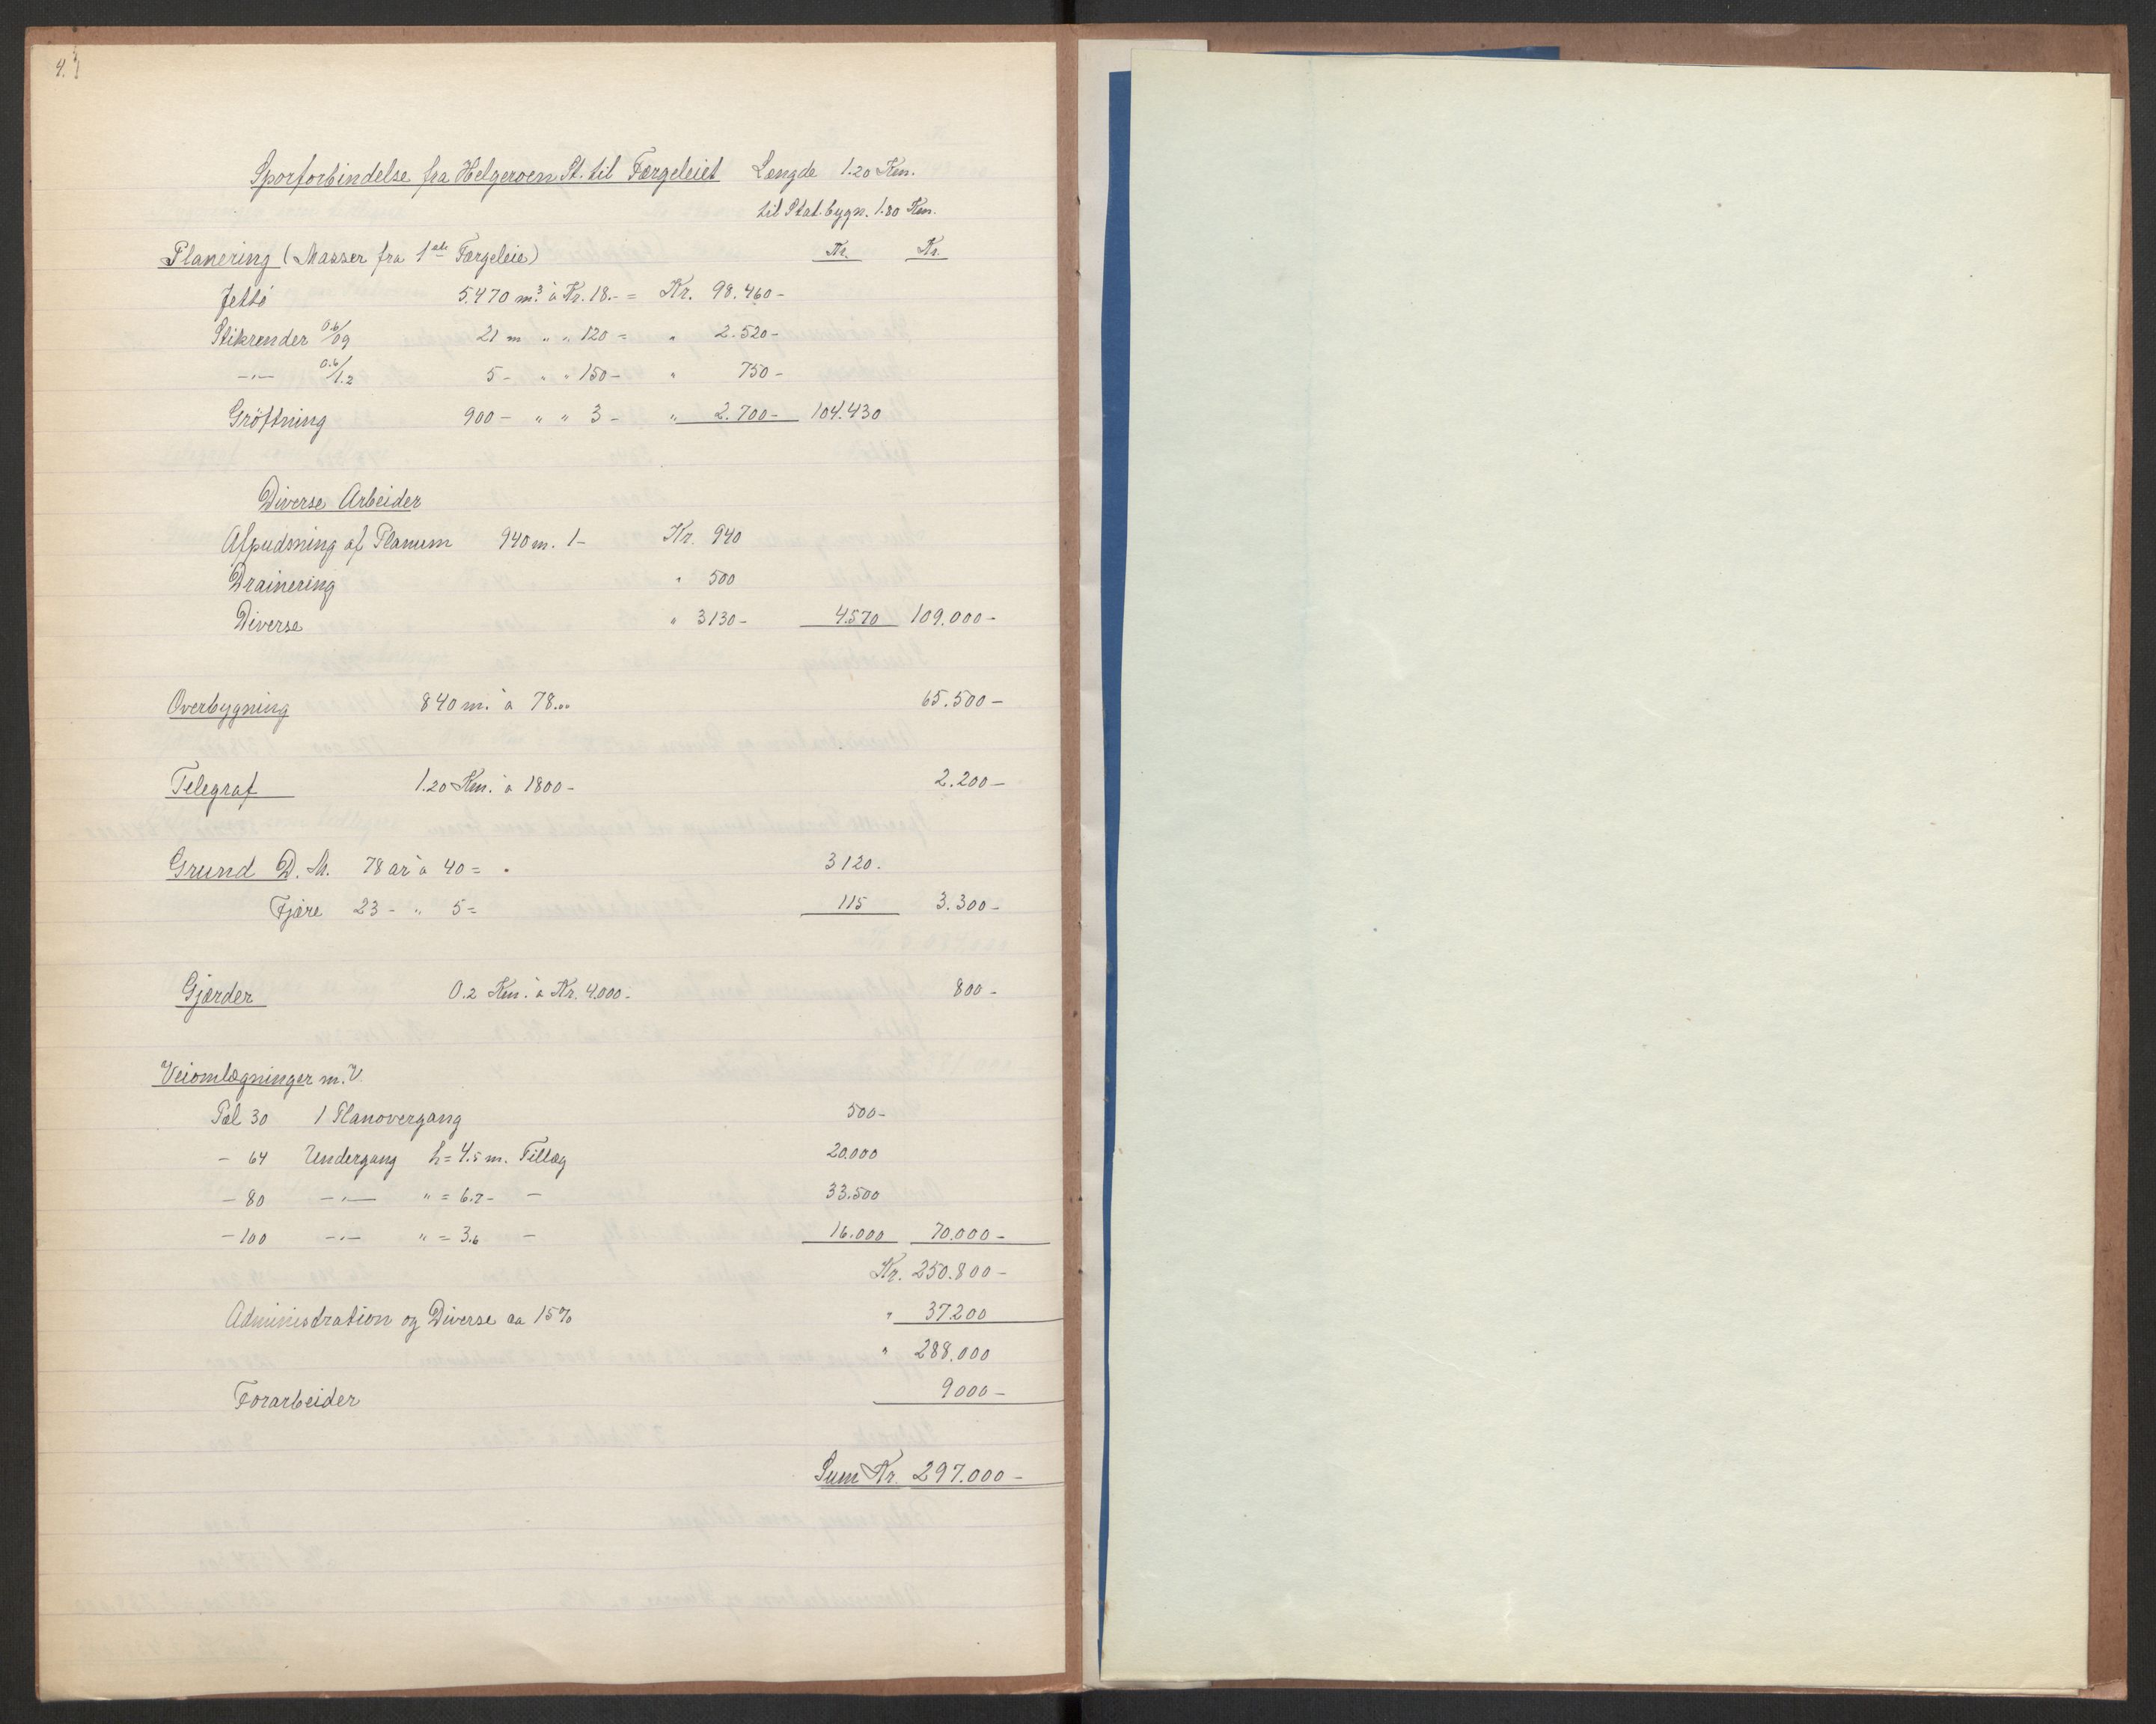 4.
Sporforbindelse fra Helgeroen St. til Færgeleiet Længde 1.20 Km.
til Stat.bygn. 1.80 Km.
Planering (Masser fra 1ste Færgeleie) Kr. Kr.
Jettè 5.470 m.³ à Kr. 18.- = Kr. 98.460-
Stikrender 0.6/09 21 m " " 120 = " 2.520-
-"- 0.6/1.2 5 - " " 150 - " 750 -
Grøftning 900 - " " 3 - " 2.700- 104.430
Diverse Arbeider
Afpudsning af Planum 940 m. 1- Kr. 940
Drainering " 500
Diverse " 3130- 4570 109.000-
Overbygning 840 m. à 78.00 65.500-
Telegraf 1.20 Km. à 1800- 2.200-
Grund D. M. 78 ar à 40 = 3120.
Fjære 23 - " 5 = 115 3.300-
Gjærder 0.2 Km. à Kr. 4000- 800-
Veiomlægninger m. V.
Pæl 30 1 Planovergang 500-
- 64 Undergang h = 4.5 m. Tillæg 20.000
- 80 -"- " = 6.7 - - 33.500
- 100 -"- " = 3.6 - 16.000 70.000-
Kr. 250.800-
Administration og Diverse ca 15% " 37200
" 288.000
Forarbeider 9000-
Sum Kr. 297.000-